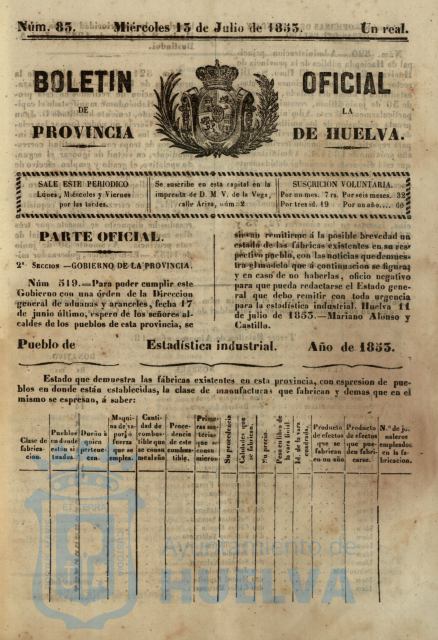 Núm. 83. Miércoles 13 de Julio de 1853. Un real.
BOLETIN OFICIAL
DE LA
PROVINCIA DE HUELVA.
SALE ESTE PERIODICO
Lúnes, Miércoles y Viernes
por las tardes.
Se suscribe en esta capital en la
imprenta de D. M V. de la Vega,
calle Arisa, núm. 2
SUSCRICION VOLUNTARIA.
Por un mes. 7 rs. Por seis meses. 32
Por tres id. 19 Por un año.... 60
PARTE OFICIAL.
2ª Seccion —GOBIERNO DE LA PROVINCIA.
Núm 519.—Para poder cumplir este
Gobierno con una órden de la Direccion
general de aduanas y aranceles, fecha 17
de junio último, espero de los señores al-
caldes de los pueblos de esta provincia, se
sirvan remitirme á la posible brevedad un
estado de las fábricas existentes en su res
pectivo pueblo, con las noticias que demues
tra el modelo que á continuacion se figura;
y en caso de no haberlas, oficio negativo
para que pueda redactarse el Estado gene-
ral que debo remitir con toda urgencia
para la estadística industrial. Huelva 11
de julio de 1853.—Mariano Alonso y
Castilla.
Pueblo de Estadística industrial. Año de 1853.
Estado que demuestra las fábricas existentes en esta provincia, con espresion de pue-
blos en donde están establecidas, la clase de manufacturas que fabrican y demas que en el
mismo se espresan, á saber:
Clase de
fabrica-
cion.
Pueblos
en donde
están si
tuadas.
Dueño á
quien
pertene-
cen.
Maqui-
na de va-
por ó
fuerza
que se
emplea.
Canti-
dad de
combus-
tible que
se consu
me al año
Proce-
dencia
de este
combus-
tible.
Prime-
ras ma-
terias
que se
consu
mieron
Su procedencia
Calidades que
se fabrican.
Su precio.
Pasamillos de
la vara lineal
Id. de la vara
cuadrada.
Producto
de efectos
que se
fabrican
en un año
Producto
de efectos
que pue-
den fabri-
carse.
N.º de jor
naleros
empleados
en la fa-
bricacion.
Ayuntamiento de
HUELVA